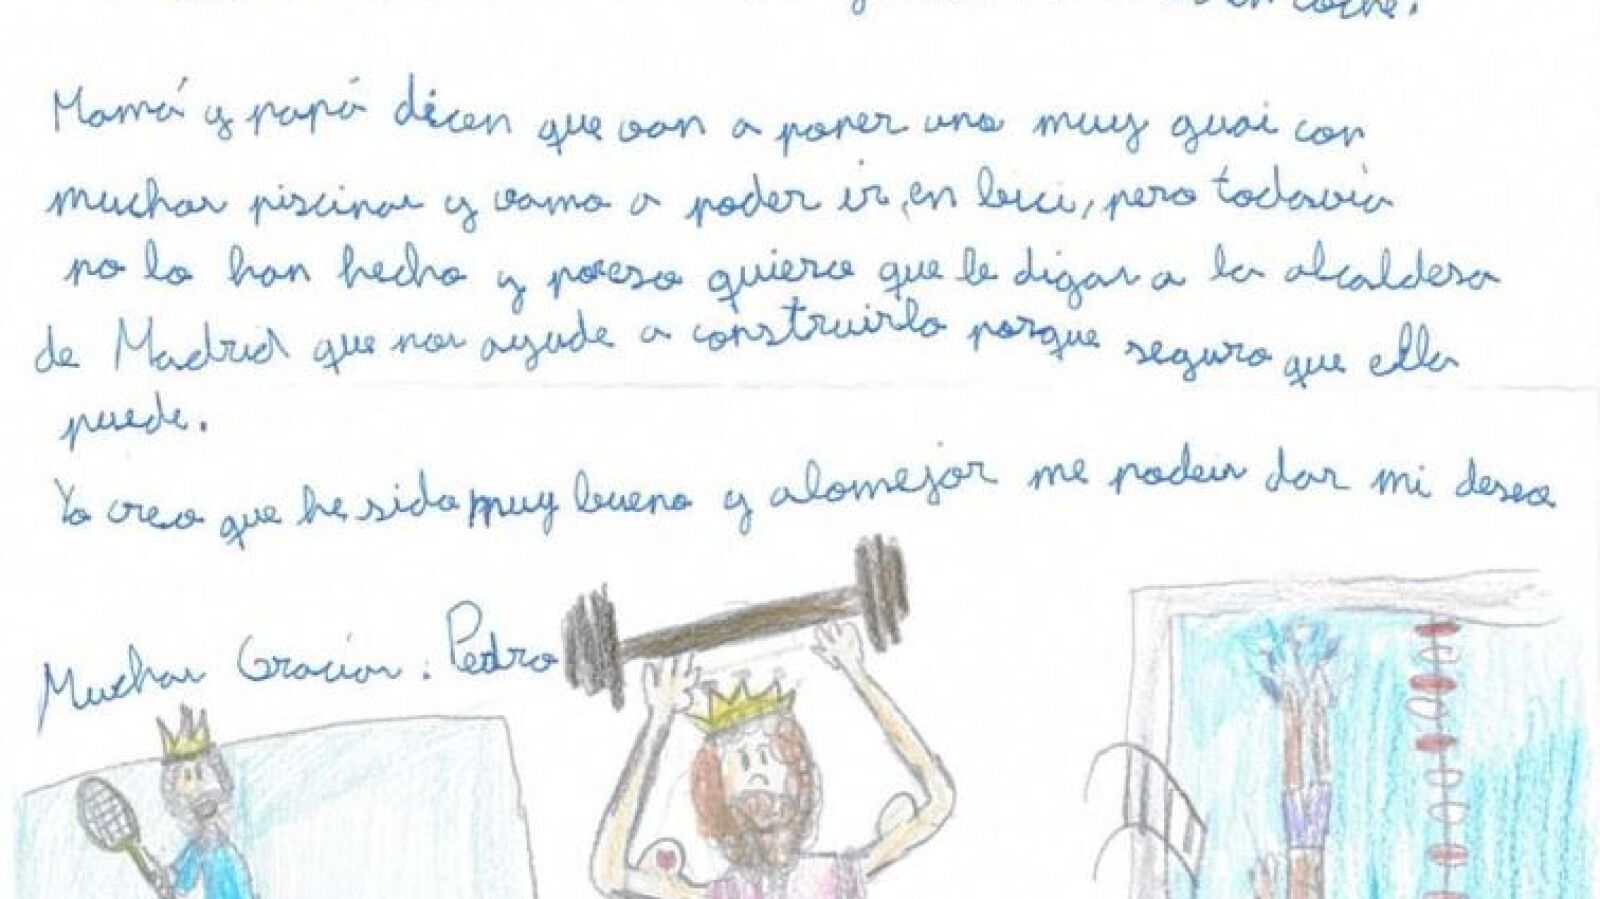 en coche.
Mamá y papá dicen que van a poner una muy guai con
muchas piscinas y vamo a poder ir en bici, pero todavía
no lo han hecho y poreso quiero que le digas a la alcaldesa
de Madrid que nos ayude a construirlo porque seguro que ella
puede.
Yo creo que he sido muy bueno y alomejor me podeis dar mi deseo
Muchas Gracias: Pedro